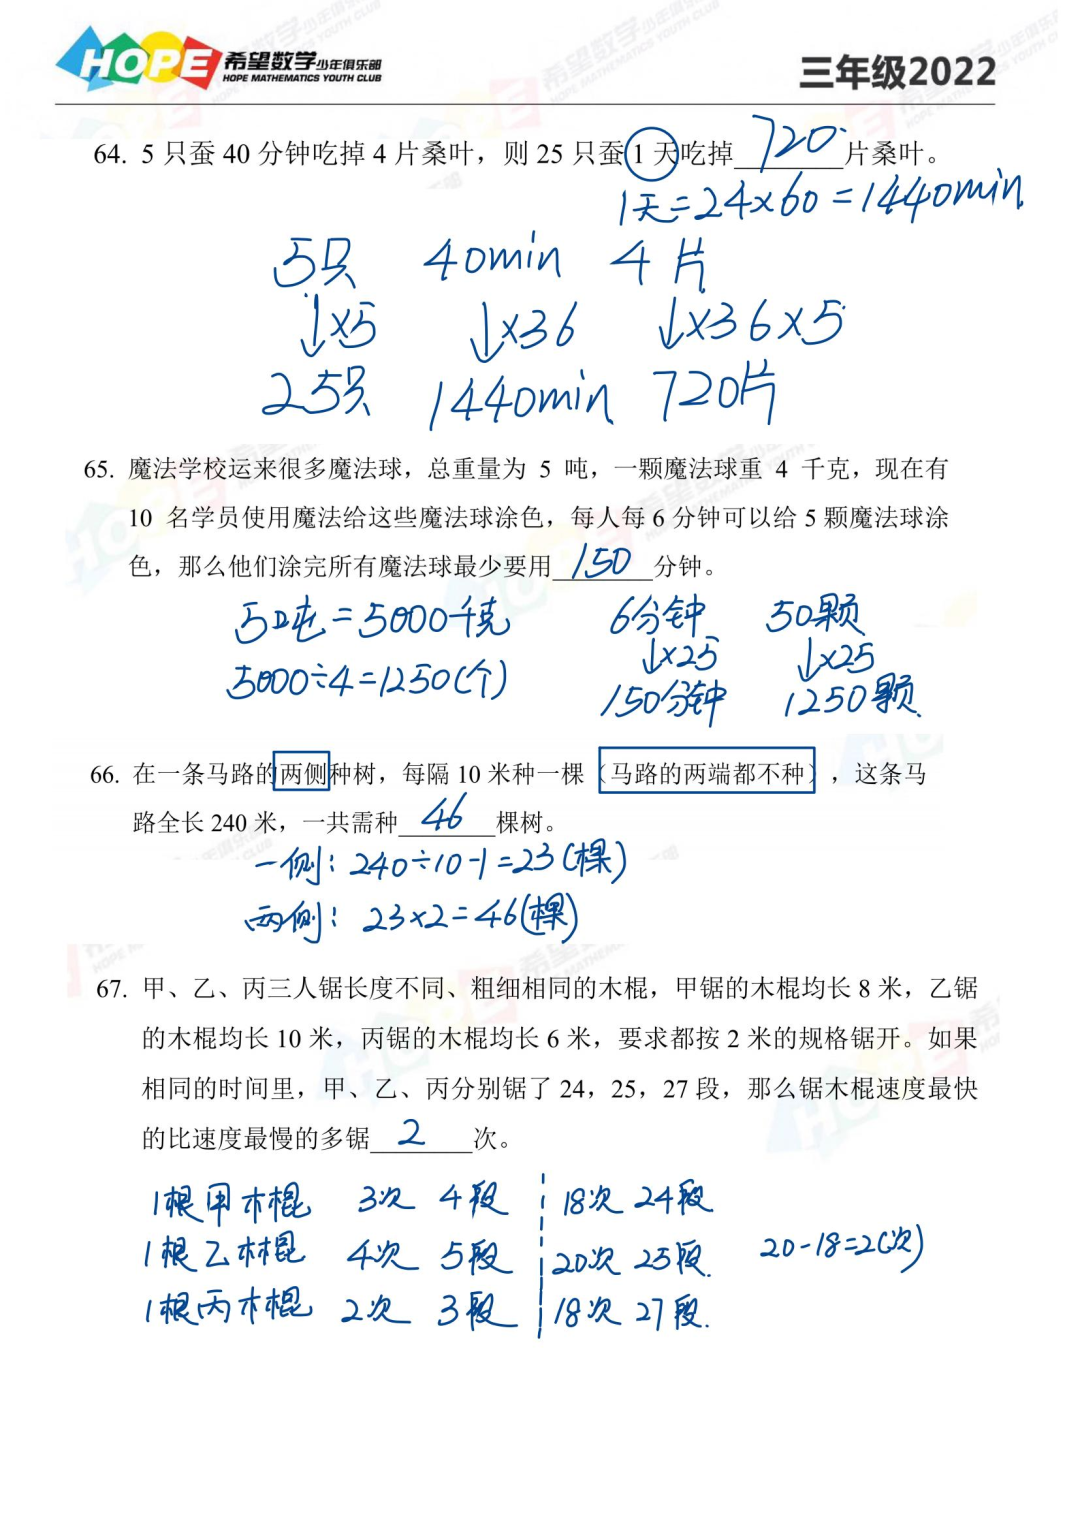 HOPE 希望数学少年俱乐部
HOPE MATHEMATICS YOUTH CLUB
三年级2022
64. 5 只蚕 40 分钟吃掉 4 片桑叶，则 25 只蚕 1 天吃掉 720 片桑叶。
1天=24×60=1440min
5只 40min 4片
↓×5 ↓×36 ↓×36×5
25只 1440min 720片
65. 魔法学校运来很多魔法球，总重量为 5 吨，一颗魔法球重 4 千克，现在有
10 名学员使用魔法给这些魔法球涂色，每人每 6 分钟可以给 5 颗魔法球涂
色，那么他们涂完所有魔法球最少要用 150 分钟。
5吨=5000千克 6分钟 50颗
↓×25 ↓×25
5000÷4=1250(个) 150分钟 1250颗
66. 在一条马路的两侧种树，每隔 10 米种一棵（马路的两端都不种），这条马
路全长 240 米，一共需种 46 棵树。
一侧：240÷10-1=23(棵)
两侧：23×2=46(棵)
67. 甲、乙、丙三人锯长度不同、粗细相同的木棍，甲锯的木棍均长 8 米，乙锯
的木棍均长 10 米，丙锯的木棍均长 6 米，要求都按 2 米的规格锯开。如果
相同的时间里，甲、乙、丙分别锯了 24，25，27 段，那么锯木棍速度最快
的比速度最慢的多锯 2 次。
1根甲木棍 3次 4段 18次 24段
1根乙木棍 4次 5段 20次 25段. 20-18=2(次)
1根丙木棍 2次 3段 18次 27段.